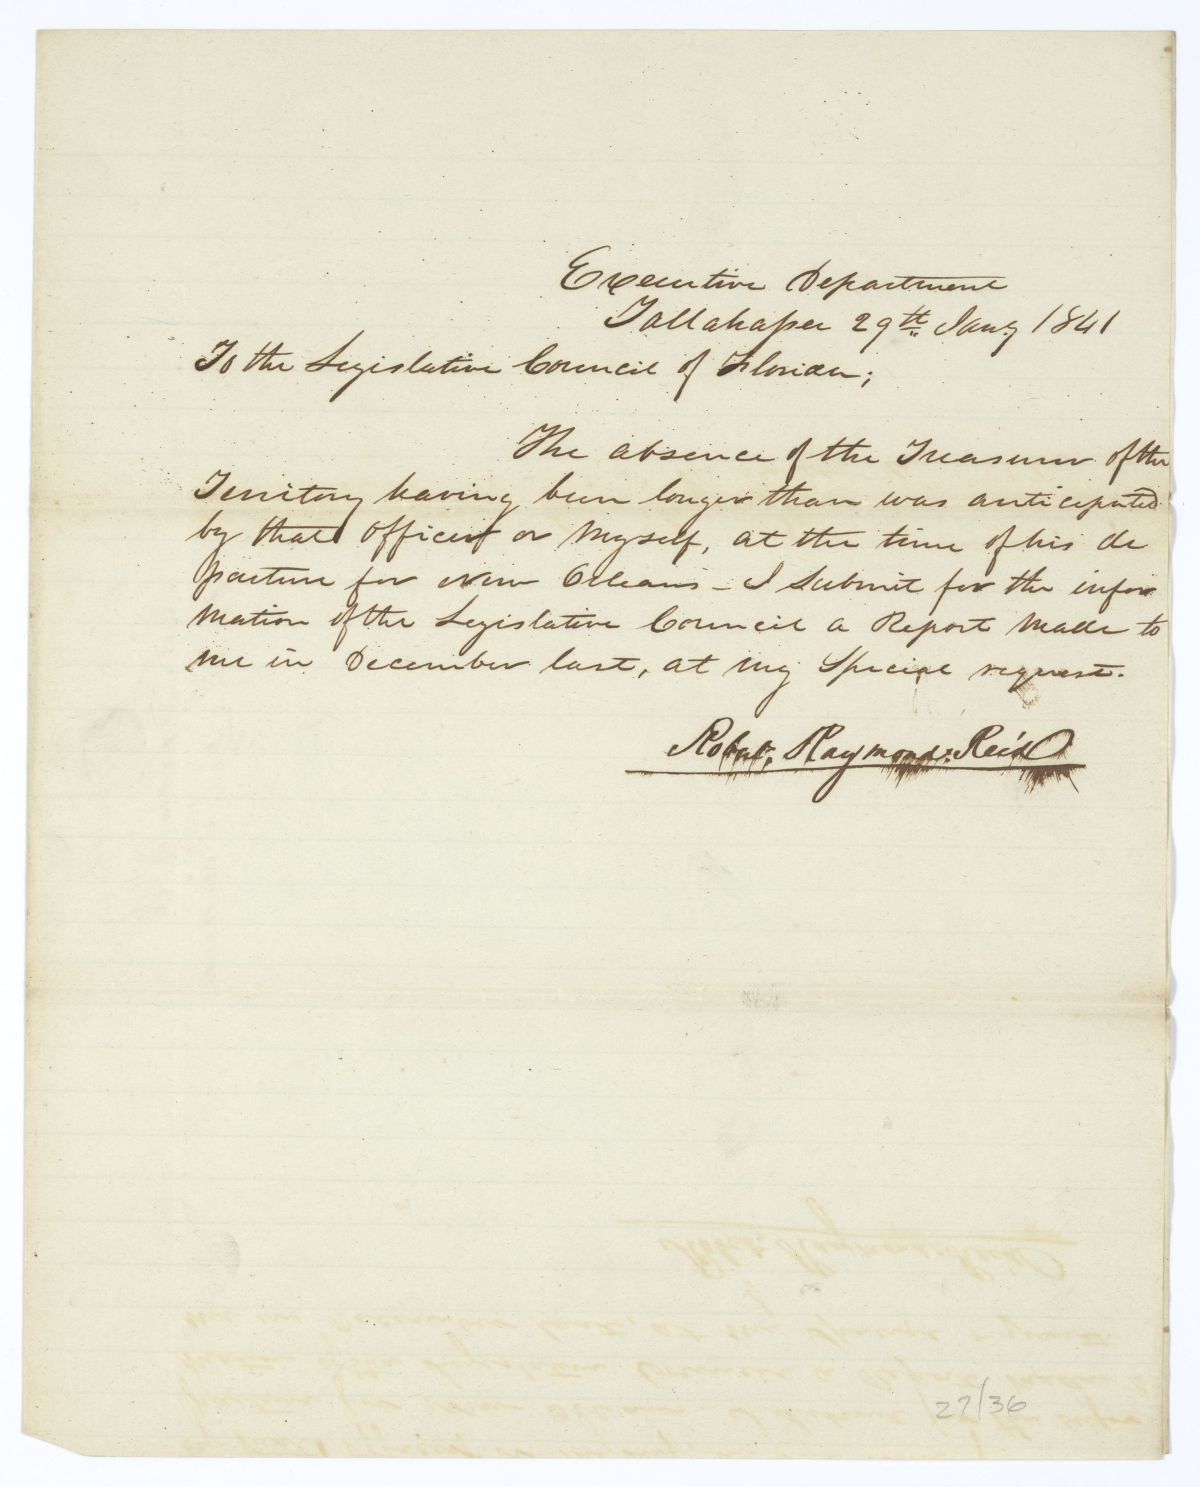 Executive Department
Tallahassee 29th Jany 1841
To the Legislative Council of Florida;
The absence of the Treasurer of the
Territory having been longer than was anticipated
by that officer or myself, at the time of his de
parture for New Orleans - I submit for the infor
mation of the Legislative Council a Report made to
me in December last, at my Special request.
Robert Raymond Reid
27/36